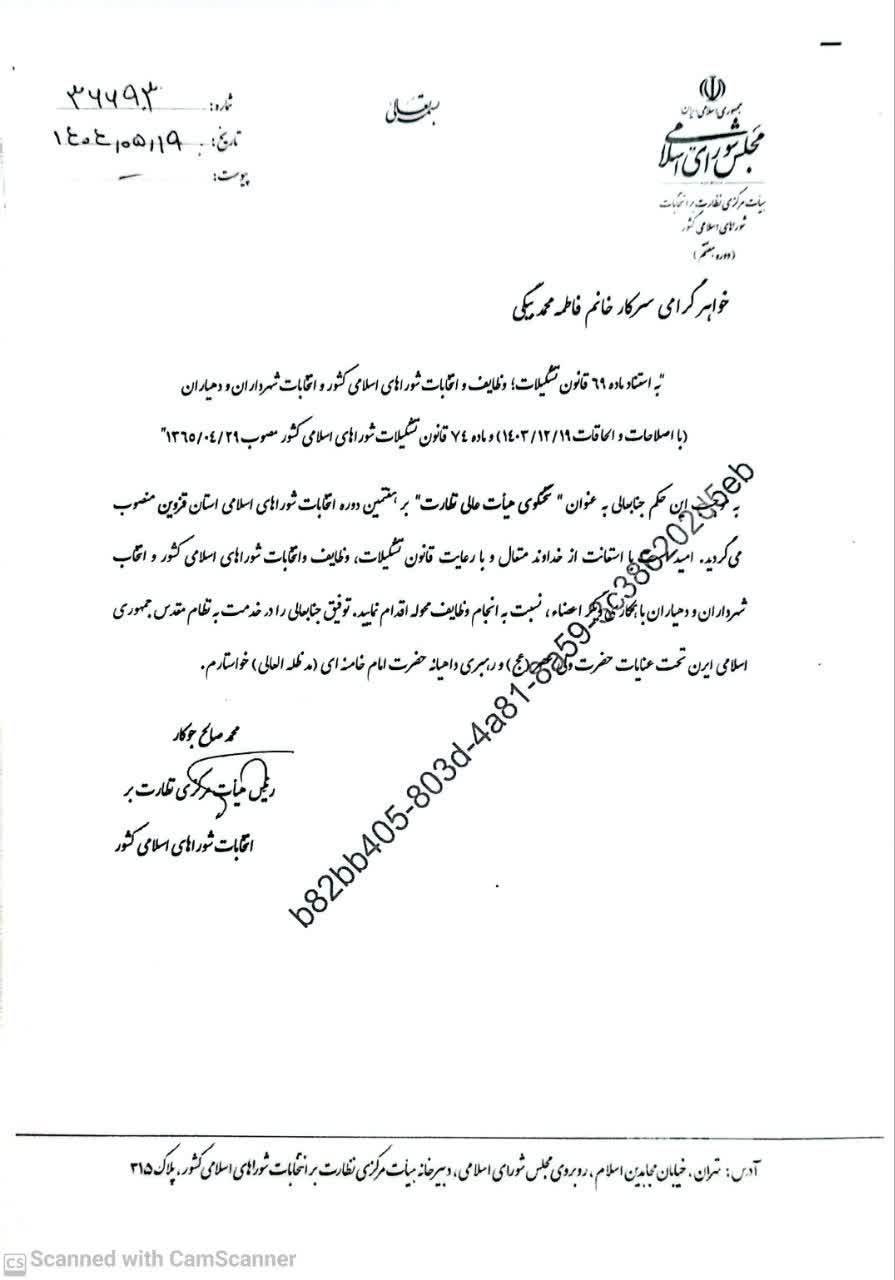 جمهوری اسلامی ایران
مجلس شورای اسلامی
هیأت مرکزی نظارت بر انتخابات
شوراهای اسلامی کشور
(دوره هفتم)
بسمه تعالی
شماره:
تاریخ: ۱۴۰۴/۰۵/۱۹
پیوست: —
خواهر گرامی سرکار خانم فاطمه محمدبیگی
"به استناد ماده ۶۹ قانون تشکیلات؛ وظایف و انتخابات شوراهای اسلامی کشور و انتخابات شهرداران و دهیاران
(با اصلاحات و الحاقات ۱۴۰۳/۱۲/۱۹) و ماده ۷۴ قانون تشکیلات شوراهای اسلامی کشور مصوب ۱۳۶۵/۰۴/۲۹"
به موجب این حکم جنابعالی به عنوان "سخنگوی هیأت عالی نظارت" بر هفتمین دوره انتخابات شوراهای اسلامی استان قزوین منصوب
می‌گردید. امید است با استعانت از خداوند متعال و با رعایت قانون تشکیلات، وظایف وانتخابات شوراهای اسلامی کشور و انتخاب
شهرداران و دهیاران با همکاری دیگر اعضاء، نسبت به انجام وظایف محوله اقدام نمایید. توفیق جنابعالی را در خدمت به نظام مقدس جمهوری
اسلامی ایرن تحت عنایات حضرت ولی عصر (عج) و رهبری داهیانه حضرت امام خامنه ای (مد ظله العالی) خواستارم.
محمد صالح جوکار
رئیس هیأت مرکزی نظارت بر
انتخابات شوراهای اسلامی کشور
آدرس: تهران، خیابان مجاهدین اسلام، روبروی مجلس شورای اسلامی، دبیرخانه هیأت مرکزی نظارت بر انتخابات شوراهای اسلامی کشور، پلاک ۳۱۵
CS Scanned with CamScanner